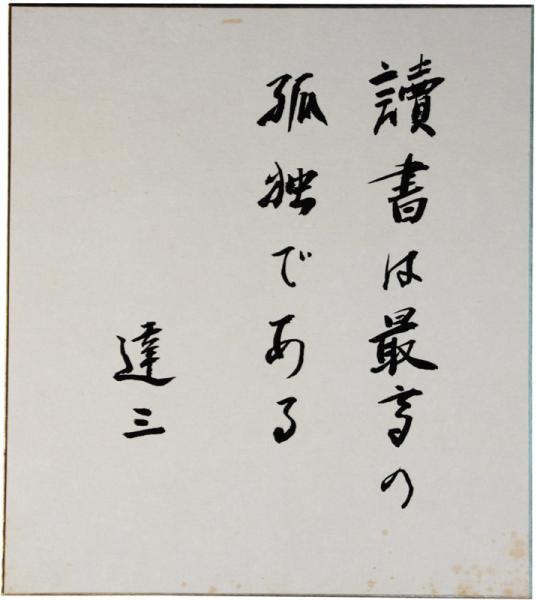 讀書は最高の
孤独である
達三